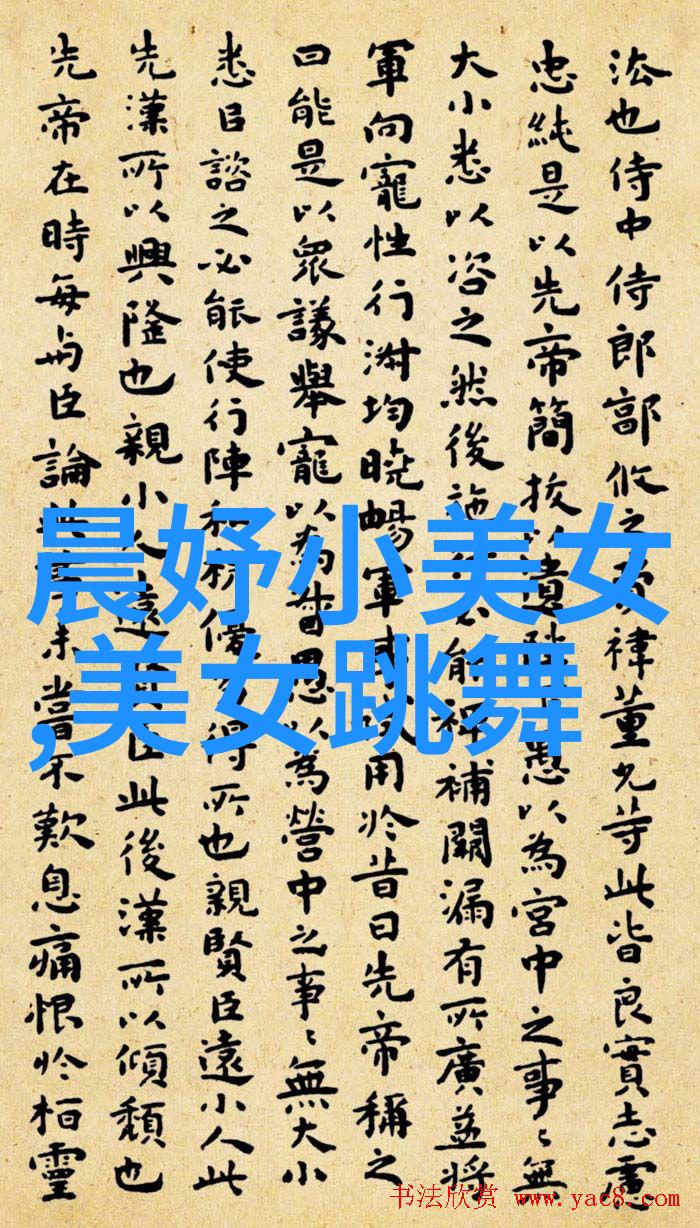 法也侍中侍郎郭攸之費禕董允等此皆良實志慮
忠純是以先帝簡拔以遺陛下愚以為宮中之事〻無
大小悉以咨之然後施行必能裨補闕漏有所廣益將
軍向寵性行淑均曉暢軍事試用於昔日先帝稱之
曰能是以眾議舉寵以為督愚以為營中之事〻無大小
悉㠯諮之必能使行陣和穆優劣得所也親賢臣遠小人此
先漢所以興隆也親小人遠賢臣此後漢所以傾頹也
先帝在時每與臣論此事未嘗不歎息痛恨於桓靈
晨妤小美女
,美女跳舞
书法欣赏 www.yac8.com